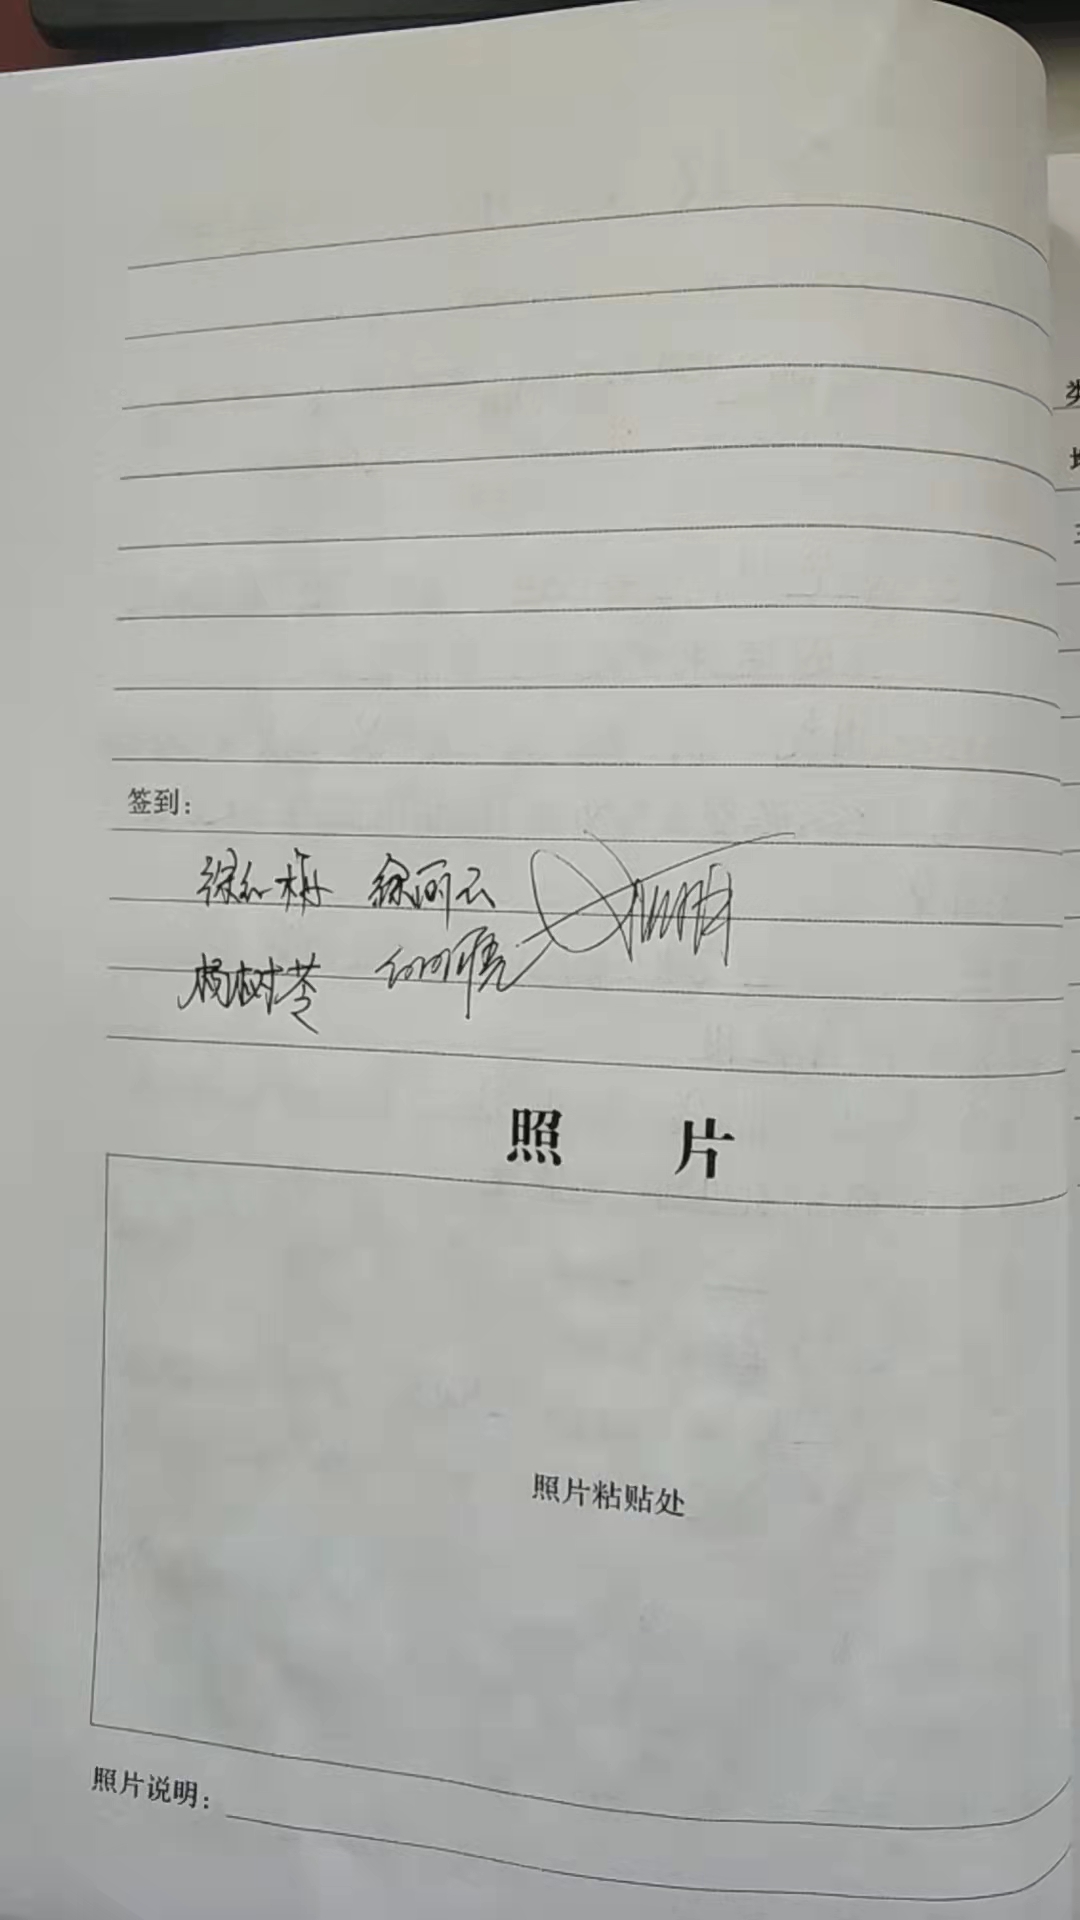 签到：
徐红梅 徐丽云
杨树苓
照 片
照片粘贴处
照片说明：
类